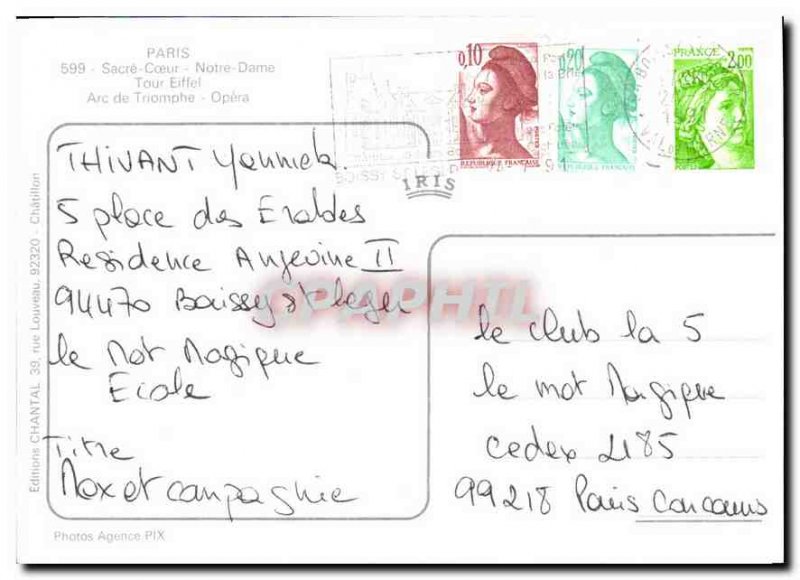 PARIS
599 - Sacré-Cœur - Notre-Dame
Tour Eiffel
Arc de Triomphe - Opéra
0,10
REPUBLIQUE FRANÇAISE
0,20
REPUBLIQUE FRANÇAISE
FRANCE
2,00
BOISSY ST
IRIS
THIVANT Yannick
5 place des Erables
Residence Angevine II
94470 Boissy st leger
le Mot Magique
Ecole
Titre
Max et campagnie
le club la 5
le mot Magique
cedex 2185
99218 Paris Concours
CPAPHIL
Editions CHANTAL 39, rue Louveau, 92320 - Châtillon
Photos Agence PIX